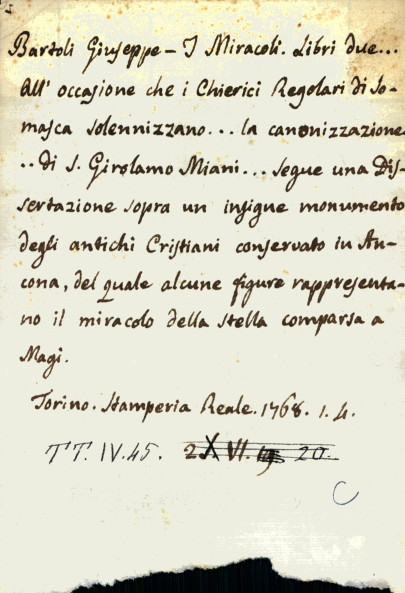 Bartoli Giuseppe - I Miracoli. Libri due...
All' occasione che i Chierici Regolari di So-
masca solennizzano... la canonizzazione
... di S. Girolamo Miani... segue una Dis-
sertazione sopra un insigne monumento
degli antichi Cristiani conservato in An-
cona, del quale alcune figure rappresenta-
no il miracolo della stella comparsa a
Magi.
Torino. Stamperia Reale. 1768. 1. 4.
TT. IV. 45. XVI. 20.
C